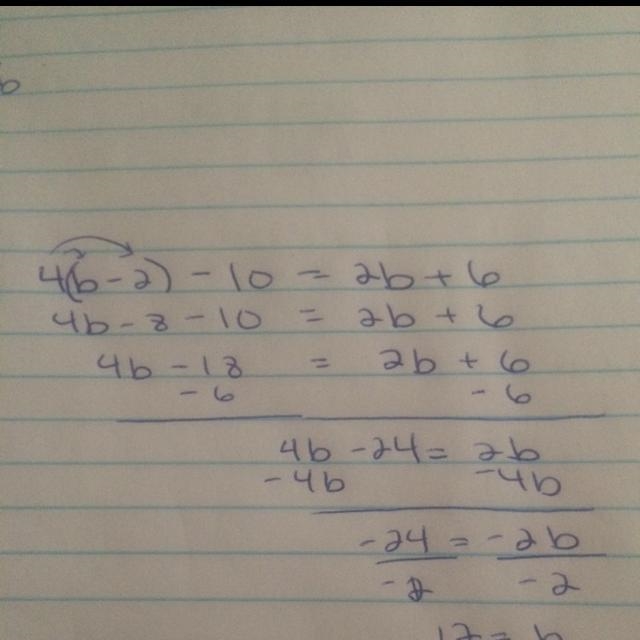 b
4(b - 2) - 10 = 2b + 6
4b - 8 - 10 = 2b + 6
4b - 18 = 2b + 6
- 6 - 6
4b - 24 = 2b
- 4b - 4b
- 24 = - 2b
- 2 - 2
12 = b